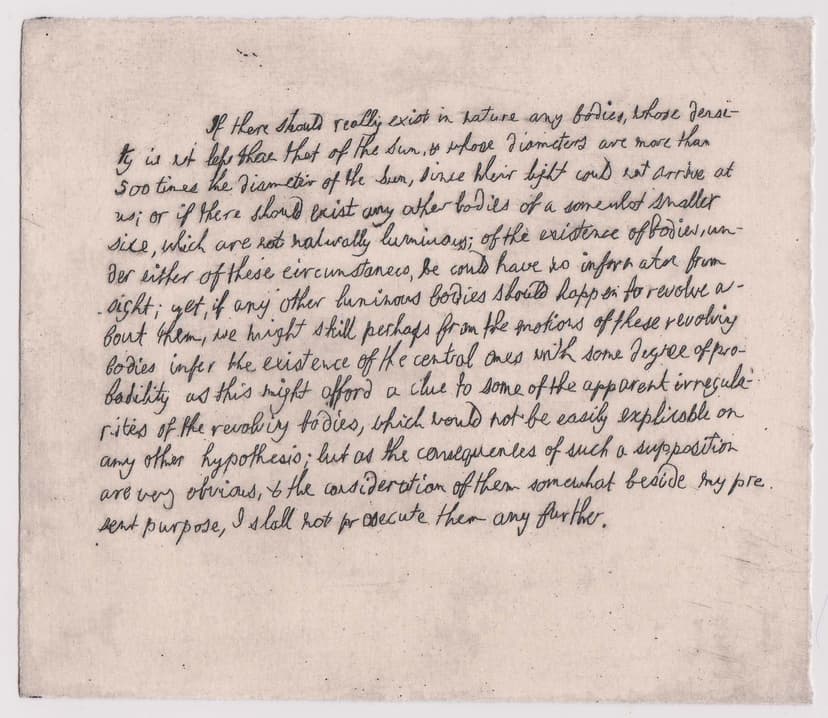 If there should really exist in nature any bodies, whose densi-
ty is not less than that of the sun, & whose diameters are more than
500 times the diameter of the sun, since their light could not arrive at
us; or if there should exist any other bodies of a somewhat smaller
size, which are not naturally luminous; of the existence of bodies, un-
der either of these circumstances, we could have no information from
sight; yet, if any other luminous bodies should happen to revolve a-
bout them, we might still perhaps from the motions of these revolving
bodies infer the existence of the central ones with some degree of pro-
bability as this might afford a clue to some of the apparent irregula-
rities of the revolving bodies, which would not be easily explicable on
any other hypothesis; but as the consequences of such a supposition
are very obvious, & the consideration of them somewhat beside my pre
sent purpose, I shall not prosecute them any further.